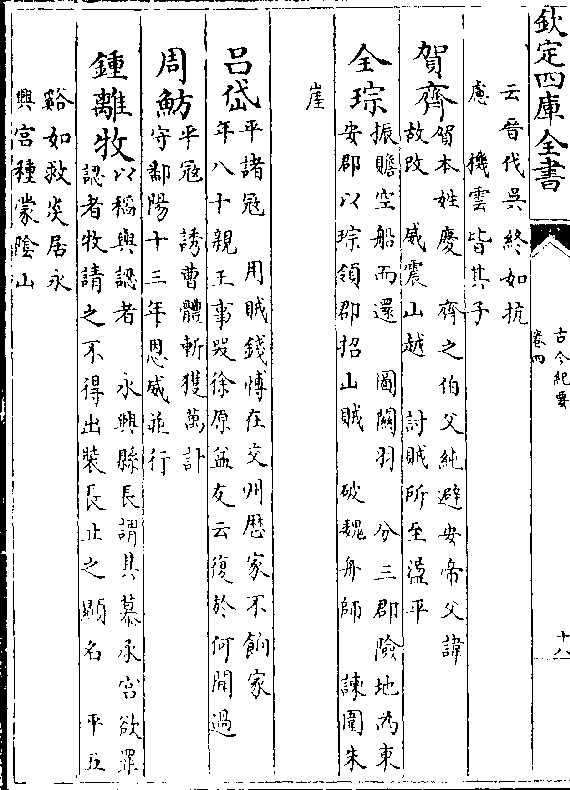 欽定四庫全書
古今紀要
卷四
十八
云晉代吳終如抗
慮　機雲皆其子
賀齊賀本姓慶　齊之伯父純避安帝父諱
故改　威震山越　討賊所至盪平
全琮振贍空船而還　圖關羽　分三郡險地為東
安郡以琮領郡招山賊　破魏舟師　諫圍朱
崖
呂岱平諸冦　用賊錢愽在交州歴家不餉家
年八十親王事毀徐原益友云復於何聞過
周魴平冦　誘曹體斬獲萬計
守鄱陽十三年恩威並行
鍾離牧以稻與認者　永興縣長謂其慕承宮欲罪
認者牧請之不得出裝長止之顯名　平五
谿如救炎居永
興宮種蒙隂山